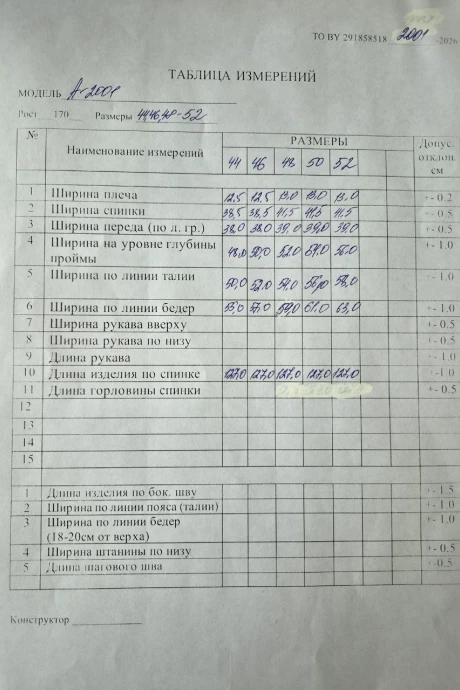 ТО BY 291858518 2001 -2026
ТАБЛИЦА ИЗМЕРЕНИЙ
МОДЕЛЬ А-2001
Рост 170 Размеры 44,46,48-52
№ Наименование измерений РАЗМЕРЫ Допус. отклон. см
44 46 48 50 52
1 Ширина плеча 12,5 12,5 13,0 13,0 13,0 +- 0.2
2 Ширина спинки 38,5 38,5 41,5 41,5 41,5 +- 0.5
3 Ширина переда (по л. гр.) 38,0 38,0 39,0 39,0 39,0 +- 0.5
4 Ширина на уровне глубины проймы 48,0 50,0 52,0 54,0 56,0 +- 1.0
5 Ширина по линии талии 50,0 52,0 54,0 56,0 58,0 +- 1.0
6 Ширина по линии бедер 55,0 57,0 59,0 61,0 63,0 +- 1.0
7 Ширина рукава вверху +- 0.5
8 Ширина рукава по низу +- 0.5
9 Длина рукава +- 1.0
10 Длина изделия по спинке 127,0 127,0 127,0 127,0 127,0 +- 1.0
11 Длина горловины спинки +- 0.5
12
13
14
15
1 Длина изделия по бок. шву +- 1.5
2 Ширина по линии пояса (талии) +- 1.0
3 Ширина по линии бедер +- 1.0
(18-20см от верха)
4 Ширина штанины по низу +- 0.5
5 Длина шагового шва +-0.5
Конструктор